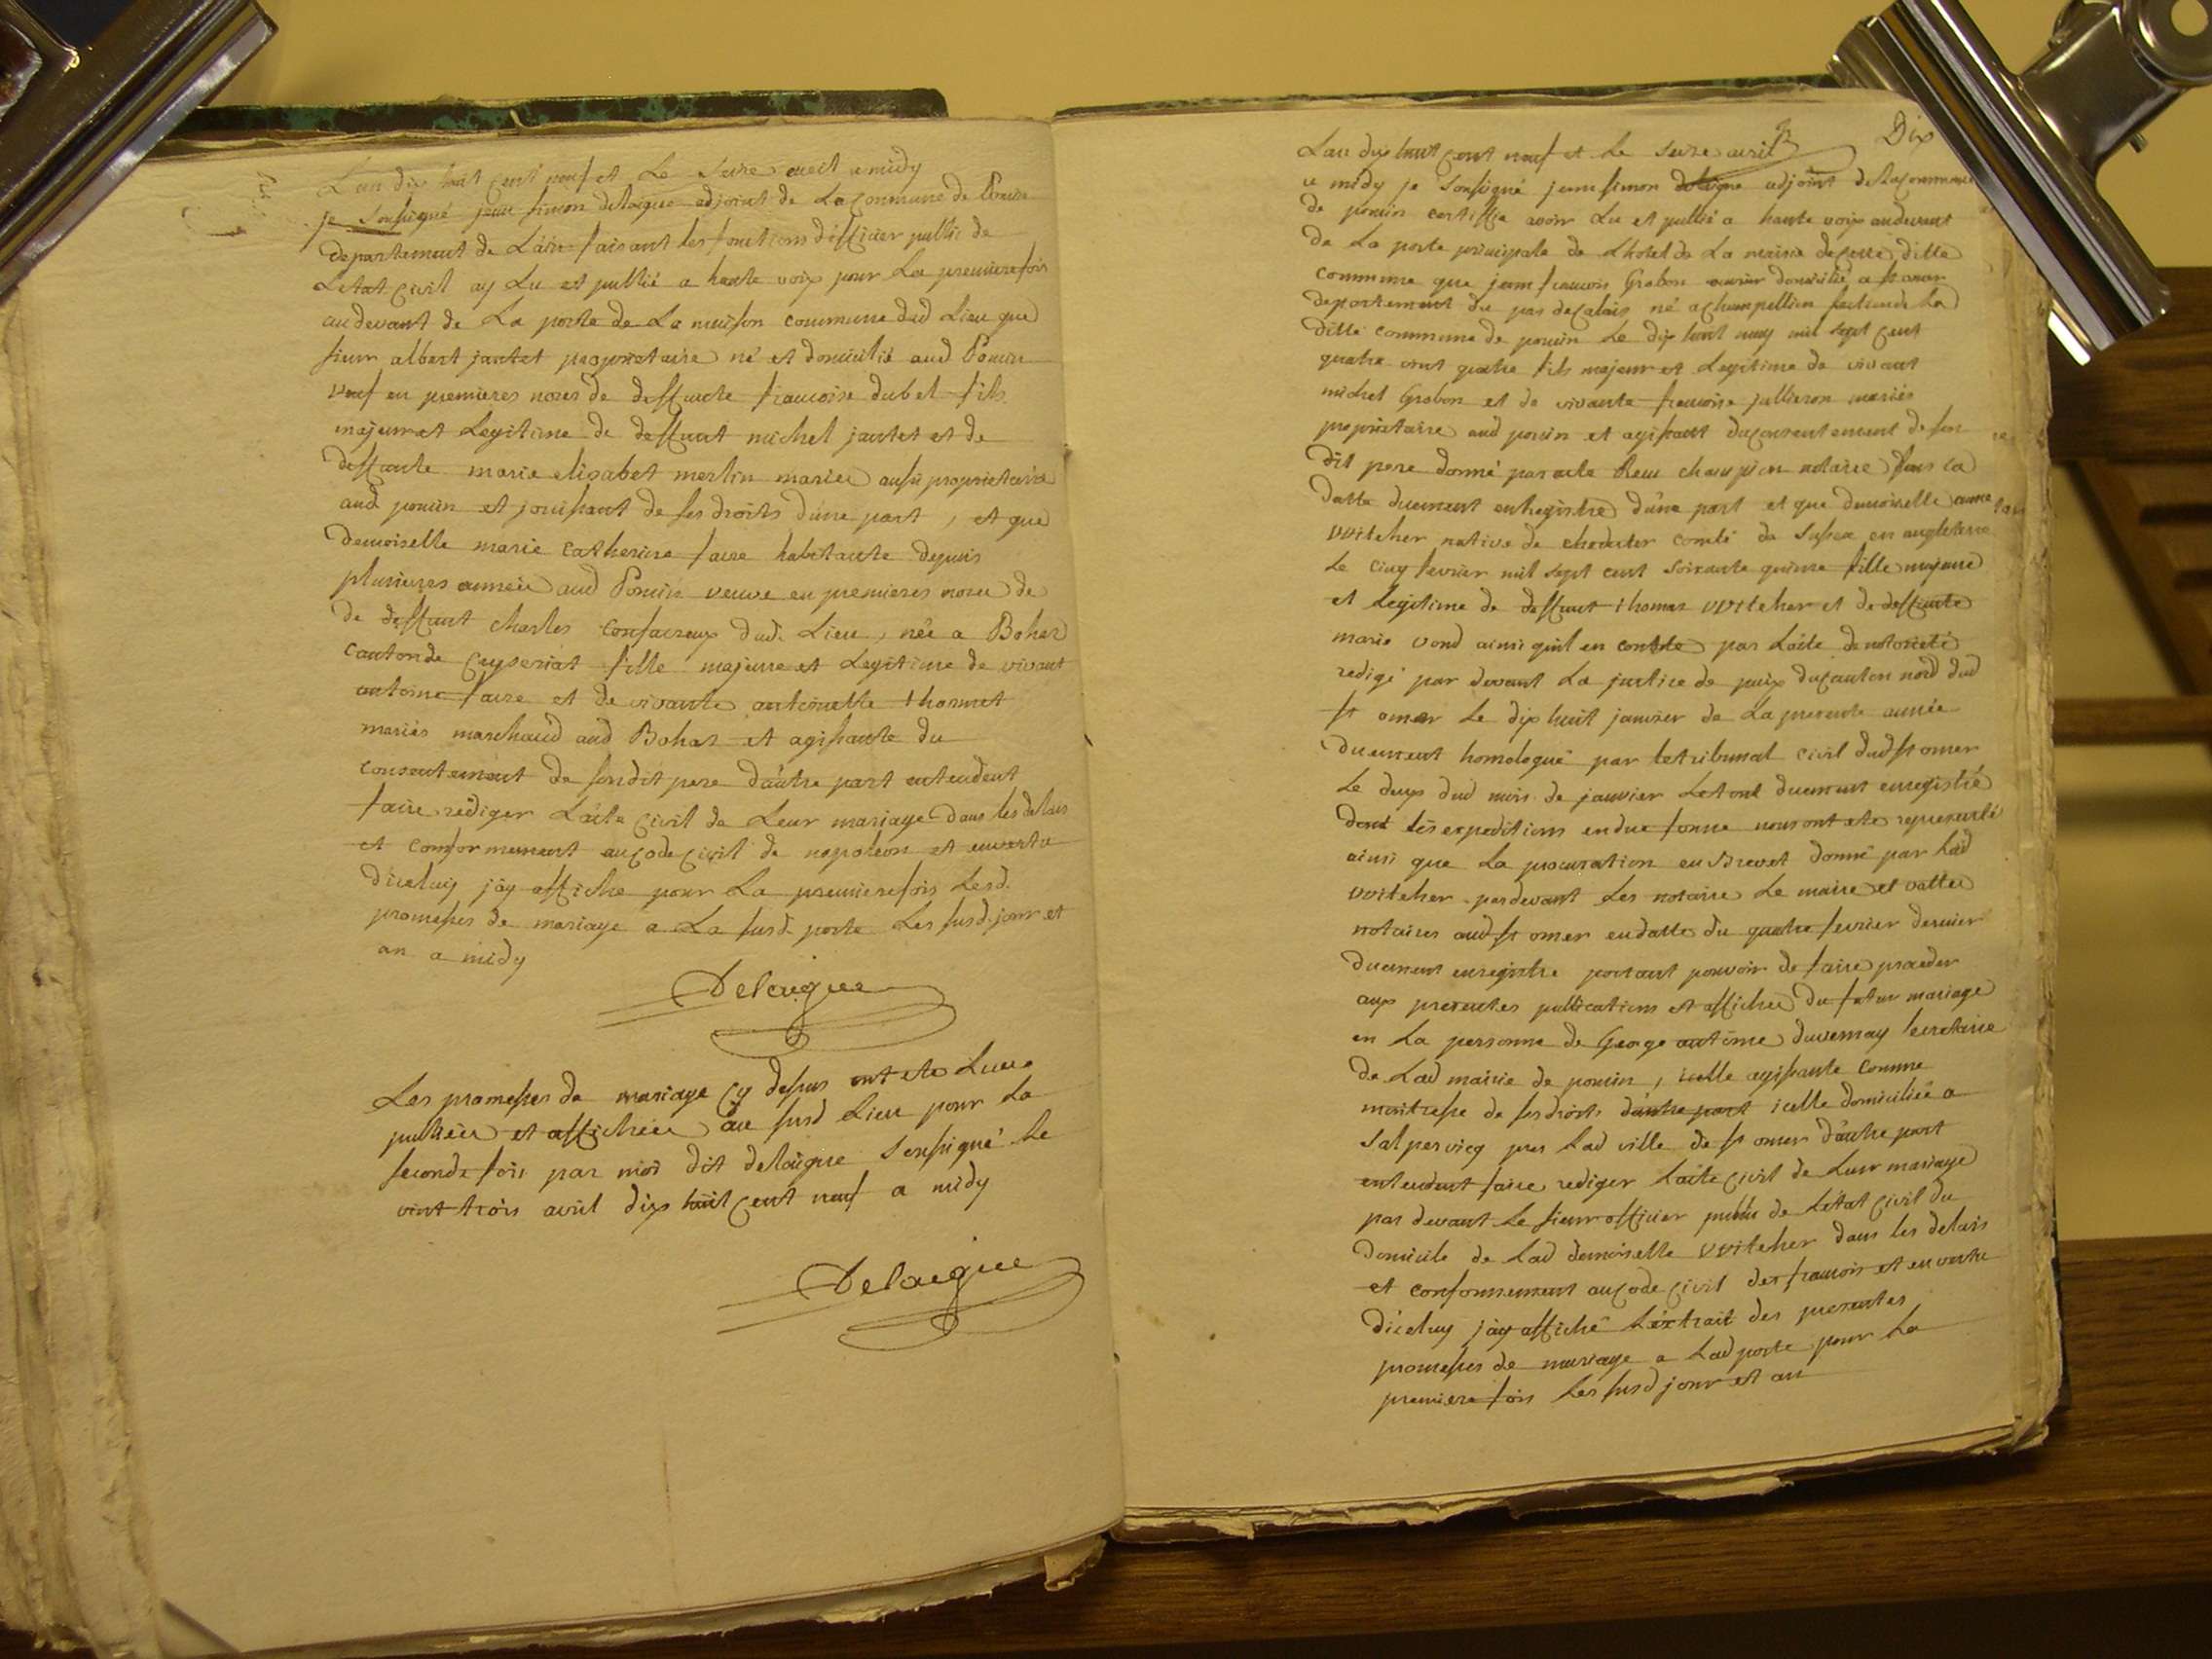 L'an dix huit cent neuf et Le Seize avril a midy
je Soussigné jean simon delaigue adjoint de La commune de Poncin
departement de L'ain faisant les fonctions d'officier public de
Letat civil ay Lu et publié a haute voix pour La premiere fois
au devant de La porte de La maison commune dud Lieu que
sieur albert jantet proprietaire né et domicilié aud Poncin
veuf en premieres noces de deffuncte francoise dubet fils
majeur et Legitime de deffunt michel jantet et de
deffunte marie elizabet merlin mariés aussi proprietaires
aud poncin et jouissant de ses droits d'une part, et que
demoiselle marie catherine faure habitante depuis
plusieurs années aud Poncin veuve en premieres noces de
de deffunt charles Confavreux dud. Lieu, née a Bohas
canton de Ceyseriat fille majeure et Legitime de vivant
antoine faure et de vivante antoinette thormet
mariés marchand aud Bohas et agissante du
consentement de son dit pere d'autre part entendent
faire rediger L'acte civil de Leur mariage dans les delais
et conformement au code civil de napoleon et en vertu
d'iceluy j'ay affiché pour La premiere fois Lesd.
promesses de mariage a La susd. porte Les susd. jour et
an a midy
Delaigue
Les promesses de mariage cy dessus ont eté Lues
publiées et affichées au susd Lieu pour La
seconde fois par moi dit delaigue Soussigné Le
vint trois avril dix huit cent neuf a midy
Delaigue
Dix
L'an dix huit cent neuf et Le Seize avril
a midy je Soussigné jean simon delaigue adjoint de La commune
de poncin certiffie avoir Lu et publié a haute voix au devant
de La porte principale de L'hotel de La mairie de cette ditte
commune que jean francois Grabon ouvrier domicilié a st omer
departement du pas de Calais né a champollion section de La
ditte commune de poncin Le dix huit may mil sept cent
quatre vint quatre fils majeur et Legitime de vivant
michel Grabon et de vivante francoise jullieron mariés
proprietaire aud poncin et agissant du consentement de son
dit pere donné par acte Reçu champion notaire sous la
datte duement enregistré d'une part et que demoiselle anne
vvitcher native de chechester comté de Sussex en angleterre
Le cinq fevrier mil sept cent soixante quinze fille majeure
et Legitime de deffunt thomas vvitcher et de deffunte
marie vond ainsi qu'il en conste par L'acte de notorieté
redigé par devant La justice de paix du canton nord dud
st omer Le dix huit janvier de La presente année
duement homologué par le tribunal civil dud st omer
Le deux dud mois de janvier Le tout duement enregistré
dont les expeditions en due forme nous ont eté representé
ainsi que La procuration en Brevet donné par Lad
vvitcher pardevant Les notaire Le maire et vattez
notaires aud st omer en datte du quatre fevrier dernier
duement enregistre portant pouvoir de faire proceder
aux presentes publications et affiches du futur mariage
en La personne de George antoine duvernay Secretaire
de Lad mairie de poncin, icelle agissante comme
maitresse de ses droits d'autre part icelle domiciliée a
Salpervicq pres Lad ville de st omer d'autre part
entendent faire rediger L'acte civil de Leur mariage
par devant Le sieur officier public de L'etat civil du
domicile de Lad demoiselle vvitcher dans les delais
et conformement au code civil des francois et en vertu
d'iceluy j'ay affiché L'extrait des presentes
promesses de mariage a Lad porte pour La
premiere fois Les susd jour et an